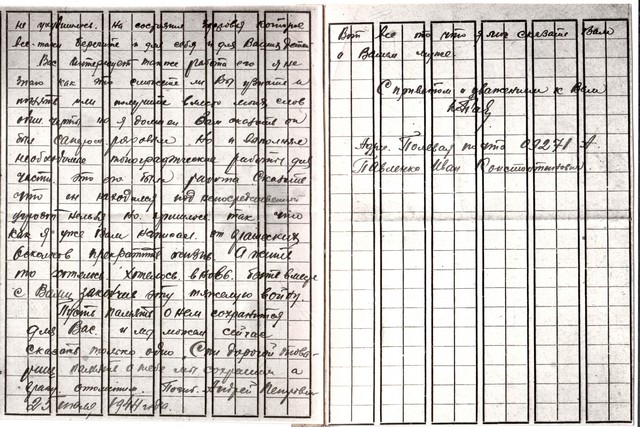 не ухудшилось. На состояние здоровья которое
все-таки берегите и для себя и для Ваших детей
Вас интересует также работа его я не
знаю как это сможете ли Вы узнать и
понять или получите вместо моих слов
одни черты, но я должен Вам сказать он
был рядовым. Но и выполнял
необходимые топографические работы для
части. Это его была работа Сказать
что он находился под непосредственной
угрозой нельзя но. пришлось так что
как я уже Вам написал от вражеских
осколков прекратить жизнь. А жить
то хотелось хотелось вновь быть вместе
с Вами закончив эту тяжелую войну.
Пусть память о нем сохранится
для Вас. и мы можем сейчас
сказать только одно. Спи дорогой това-
рищ память о тебе мы сохраним а
врагу отомстим. Андрей Петрович
25 июля 1944 года.
Вот все то что я мог сказать Вам
о Вашем муже.
С приветом и уважением к Вам
Адрес. Полевая почта 09278 А.
Павленко Иван Константинович.